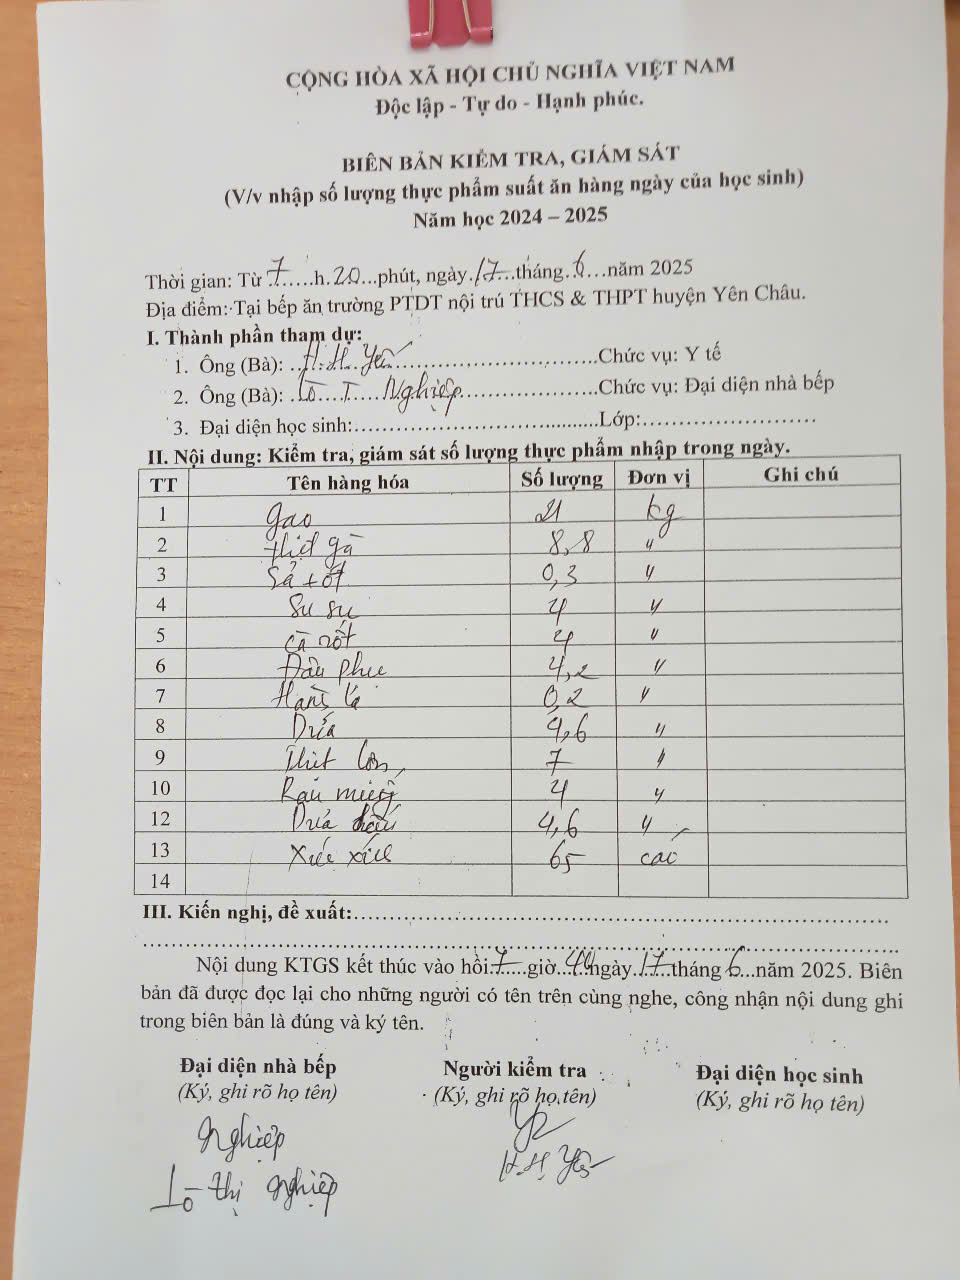 CỘNG HÒA XÃ HỘI CHỦ NGHĨA VIỆT NAM
Độc lập - Tự do - Hạnh phúc.
BIÊN BẢN KIỂM TRA, GIÁM SÁT
(V/v nhập số lượng thực phẩm suất ăn hàng ngày của học sinh)
Năm học 2024 – 2025
Thời gian: Từ 7 h 20 phút, ngày 17 tháng 6 năm 2025
Địa điểm: Tại bếp ăn trường PTDT nội trú THCS & THPT huyện Yên Châu.
I. Thành phần tham dự:
1. Ông (Bà): H.H. Yến Chức vụ: Y tế
2. Ông (Bà): Lò T. Nghiệp Chức vụ: Đại diện nhà bếp
3. Đại diện học sinh: Lớp:
II. Nội dung: Kiểm tra, giám sát số lượng thực phẩm nhập trong ngày.
TT Tên hàng hóa Số lượng Đơn vị Ghi chú
1 gạo 21 kg
2 thịt gà 8,8 "
3 Sả + ớt 0,3 "
4 Su su 4 "
5 Cà rốt 4 "
6 Đậu phụ 4,2 "
7 Hành lá 0,2 "
8 Dứa 4,6 "
9 Thịt lợn 7 "
10 Rau muống 4 "
12 Dưa hấu 4,6 "
13 Xúc xích 65 cái
14
III. Kiến nghị, đề xuất:
Nội dung KTGS kết thúc vào hồi 7 giờ 40 ngày 17 tháng 6 năm 2025. Biên
bản đã được đọc lại cho những người có tên trên cùng nghe, công nhận nội dung ghi
trong biên bản là đúng và ký tên.
Đại diện nhà bếp Người kiểm tra Đại diện học sinh
(Ký, ghi rõ họ tên) (Ký, ghi rõ họ tên) (Ký, ghi rõ họ tên)
Nghiệp
Lò thị Nghiệp H.H Yến